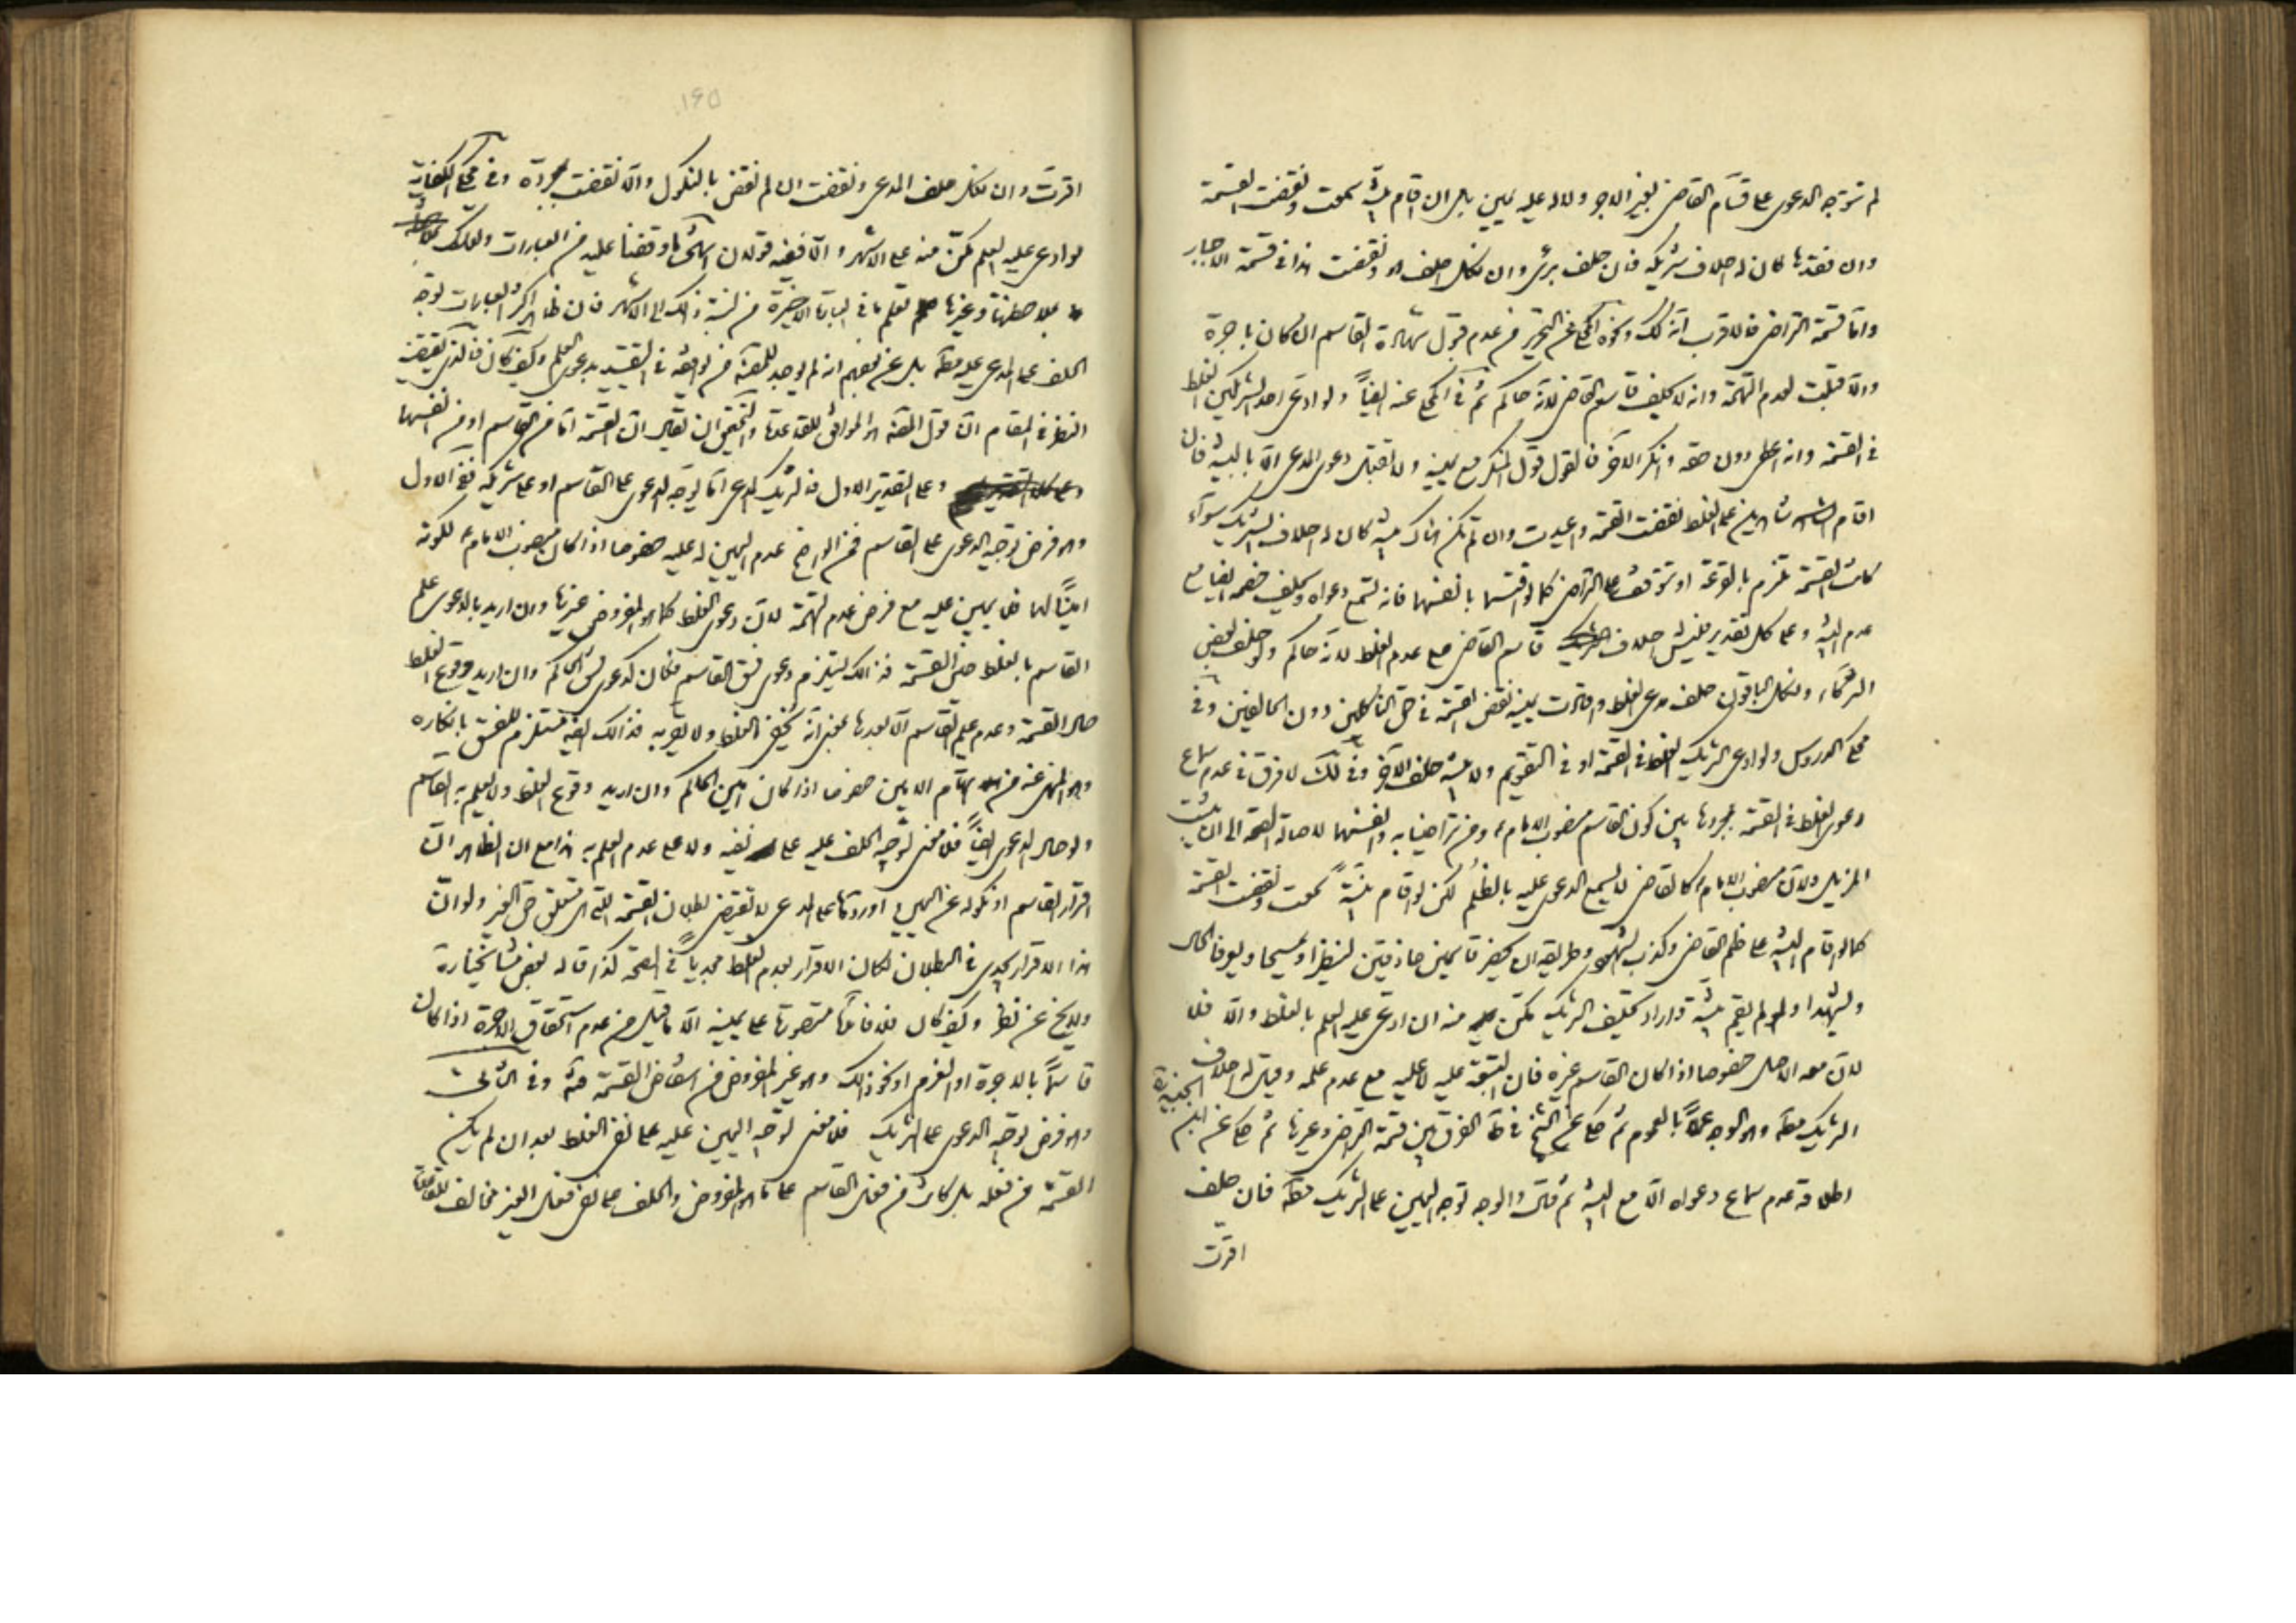 لم تتوجه الدعوى على قسّام القاضي بغير الاجر ولا له عليه يمين بل ان اقام بيّنة سمعت ونقضت القسمة
وان فقدها كان له احلاف شريكه فان حلف برئ وان نكل احلف هو ونقضت هذا في قسمة الاجبار
وامّا قسمة التراضي فالاقرب انه كك ونحوه المحكي عن التحرير من عدم قبول شهادة القاسم ان كان باجرة
والّا قبلت لعدم التهمة وانه لا يحلف قاسم القاضي لانه حاكم ثم في المحكي عنه ايضاً ولو ادعى احد الشريكين الغلط
في القسمة وانه اعطي دون حقه وانكر الاخر فالقول قول المنكر مع يمينه ولا تقبل دعوى المدعي الّا بالبينة فان
اقام شاهدين على الغلط نقضت القسمة واعيدت وان لم تكن هناك بينة كان له احلاف الشريك سواء
كانت القسمة تلزم بالقرعة او تتوقف على التراضي كما لو اقتسما بانفسهما فانه تسمع دعواه ويحلف خصمه ايضا مع
عدم البينة وعلى كل تقدير فليس احلاف قاسم القاضي على عدم الغلط لانه حاكم ولو حلف بعض
الشركاء ونكل الباقون حلف مدعي الغلط وافادت يمينه نقض القسمة في حق الناكلين دون الحالفين وفي
محكي الدروس ولو ادعى الشريك الغلط في القسمة او في التقويم ولا بينة حلف الاخر وفي لك لا فرق في عدم سماع
دعوى الغلط في القسمة بمجردها بين كون القاسم منصوب الامام ومن تراضيا به وانفسهما لاصالة الصحة الى ان يثبت
المزيل ولان منصوب الامام كالقاضي لا يسمع الدعوى عليه بالظلم لكن لو اقام بيّنةً سمعت ونقضت القسمة
كما لو اقام البينة على ظلم القاضي وكذب الشهود وطريقه ان يحضر قاسمين حاذقين لينظرا ويمسحا ويعرفا الحال
وليشهدا ولو لم يقم بيّنة واراد تحليف الشريك مكّن منه ان ادعى عليه العلم بالغلط والّا فلا
لان معه الاصل خصوصا اذا كان القاسم غيره فان التبعة عليه لا عليه مع عدم علمه وقيل له احلاف
الشريك مطه وهو الوجه عملاً بالعموم ثم حكى عن الشيخ في ط الفرق بين قسمة التراضي وغيرها ثم حكى عن ابن الجنيد
اطلاقه عدم سماع دعواه الّا مع البينة ثم قال والوجه توجه اليمين على الشريك مطه فان حلف
اقرّت
۱۶۵
اقرّت وان نكل حلف المدعي ونقضت ان لم نقض بالنكول والّا نقضت بمجرده وفي محكي الكفاية
لو ادعى عليه العلم مكّن منه على الاشهر والّا ففيه قولان انتهى ما وقفنا عليه من العبارات ولعلك
بملاحظتها وغيرها تعلم ما في العبارة الاخيرة من نسبة ذلك الى الاشهر فان ظاهر اكثر العبارات توجه
الحلف على المدعى عليه مطه بل عن بعضهم انه لم يوجد للعلامة من يوافقه في التقييد بدعوى العلم وكيف كان فالذي يقتضيه
النظر في المقام ان قول العلامة هو الموافق للقاعدة والتحقيق ان يقال ان القسمة امّا من القاسم او من انفسهما
وعلى التقدير الاول فالشريك المدعي امّا يوجّه الدعوى على القاسم او على شريكه ففي الاول
وهو فرض توجيه الدعوى على القاسم فمن الواضح عدم اليمين له عليه خصوصا اذا كان منصوب الامام لكونه
اميناً لهما فلا يمين عليه مع فرض عدم التهمة لان دعوى الغلط كما هو المفروض غيرها وان اريد بالدعوى علم
القاسم بالغلط حين القسمة فذلك يستلزم دعوى فسق القاسم فكان كدعوى فسق الحاكم وان اريد وقوع الغلط
حال القسمة وعدم علم القاسم الّا بعدها بمعنى انه يخفي الغلط ولا يقرّ به فذلك ايضا مستلزم للفسق بانكاره
وهو المنهي عنه من اتهام الامين خصوصا اذا كان امين الحاكم وان اريد وقوع الغلط ولا يعلم به القاسم
ولو حال الدعوى ايضاً فلا معنى لتوجه الحلف عليه على نفيه ولا على عدم العلم به هذا مع ان الظاهر ان
اقرار القاسم او نكوله عن اليمين او ردّها على المدعي لا يقتضي بطلان القسمة التي هي متعلق حق الغير ولو ان
هذا الاقرار يجدي في البطلان لكان الاقرار بعدم الغلط مجدياً في الصحة كذا قاله بعض مشايخنا ره
ولا يخ عن نظر وكيف كان فلا فائدة متصورة على يمينه الّا ما قيل من عدم استحقاق الاجرة اذا كان
قاسماً بالاجرة او الغرم او نحو ذلك وهو غير المفروض من انتقاض القسمة منه وفي الثاني
وهو فرض توجه الدعوى على الشريك فلا معنى لتوجّه اليمين عليه على نفي الغلط بعد ان لم يكن
القسمة من فعله بل كانت من فعل القاسم على ما هو المفروض والحلف على نفي فعل الغير مخالف للقاعدة